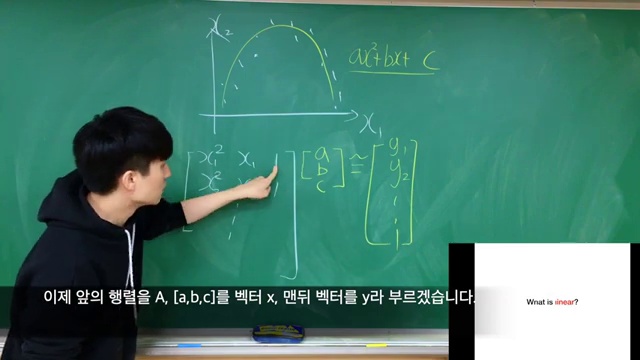 x₂
ax²+bx+ c
x₁
x₁² x₁ 1
a
b
c
≃
y₁
y₂
이제 앞의 행렬을 A, [a,b,c]를 벡터 x, 맨뒤 벡터를 y라 부르겠습니다.
What is linear?